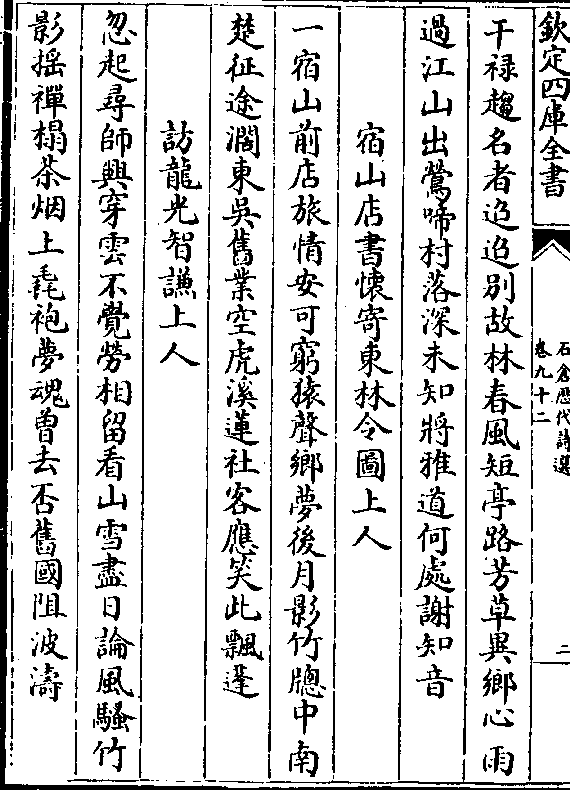 欽定四庫全書
石倉歴代詩選
卷九十二
二
干禄趨名者迢迢別故林春風短亭路芳草異鄉心雨
過江山出鶯啼村落深未知將雅道何處謝知音
宿山店書懐寄東林令圖上人
一宿山前店旅情安可窮猿聲鄉夢後月影竹牕中南
楚征途濶東吳舊業空虎溪蓮社客應笑此飄蓬
訪龍光智謙上人
忽起尋師興穿雲不覺勞相留看山雪盡日論風騷竹
影揺禪榻茶烟上毳袍夢魂曽去否舊國阻波濤